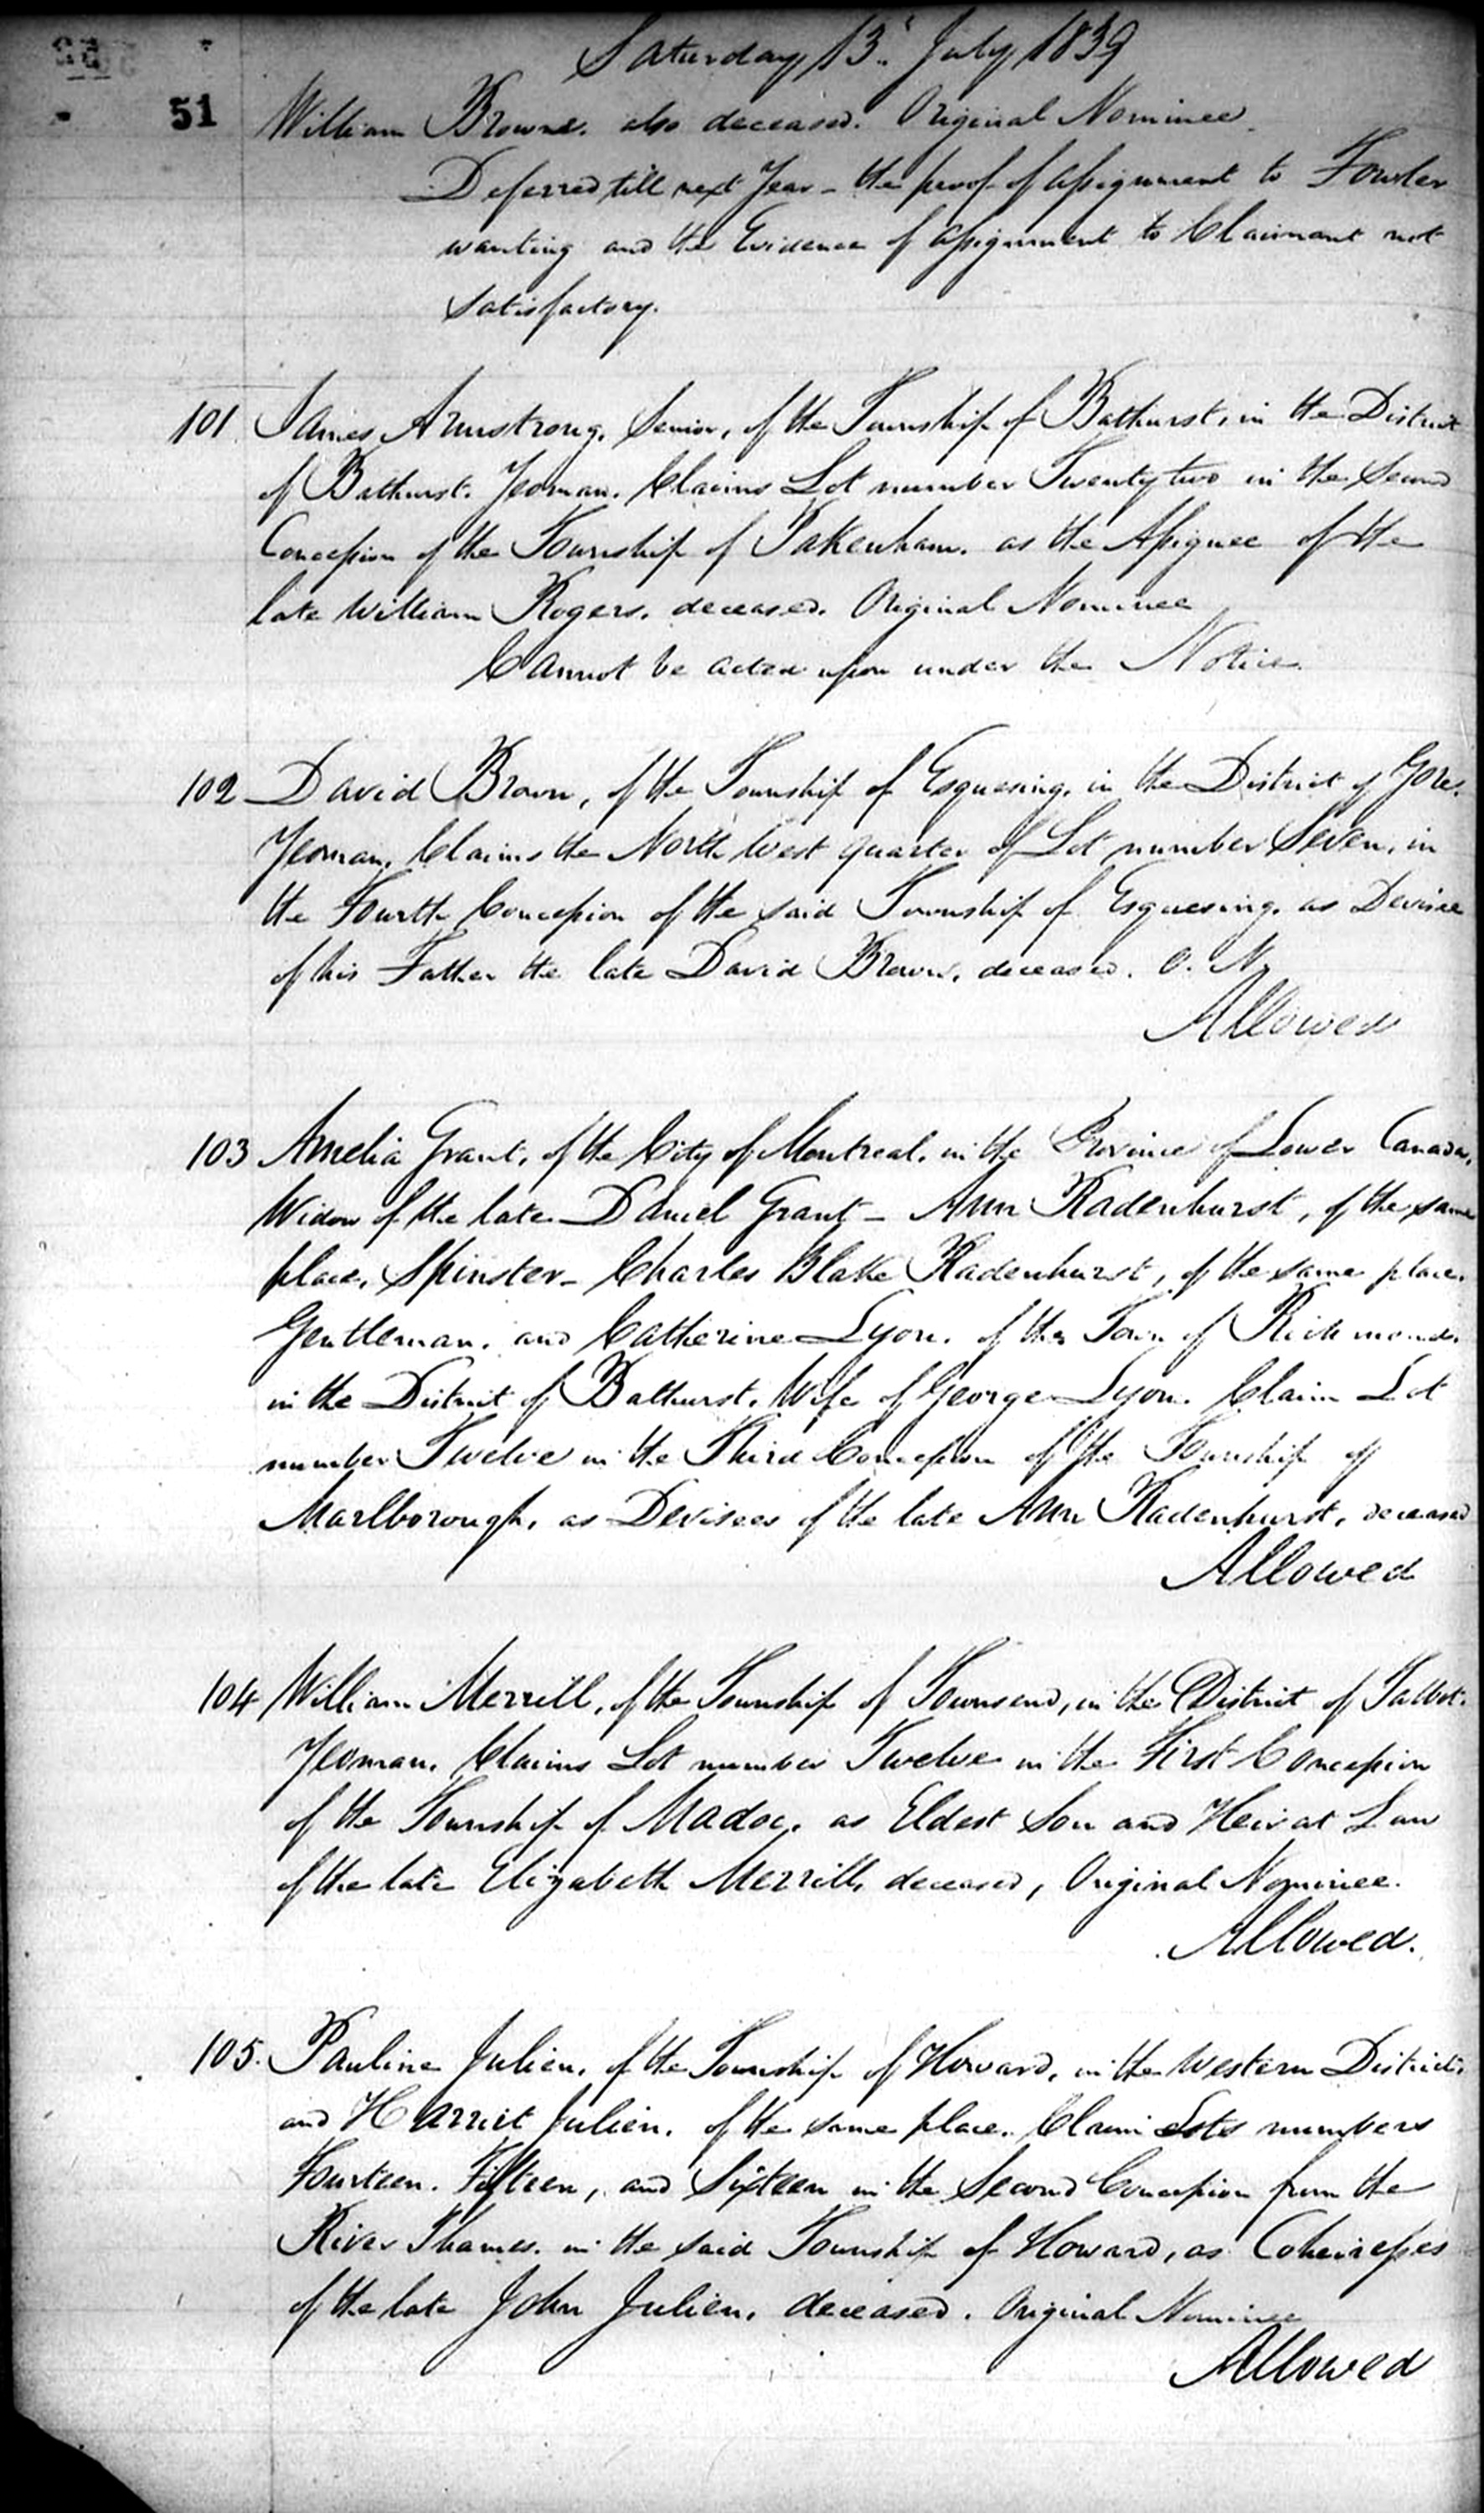 Saturday, 13. July, 1839
51
William Browne. also deceased. Original Nominee.
Deferred till next Year - the proof of assignment to Fowler
wanting and the Evidence of assignment to Claimant not
satisfactory.
101 James Armstrong, Senior, of the Township of Bathurst, in the District
of Bathurst. Yeoman. Claims Lot number Twenty two in the Second
Concession of the Township of Pakenham. as the Assignee of the
late William Rogers. deceased. Original Nominee
Cannot be acted upon under the Notice.
102 David Brown, of the Township of Esquesing, in the District of Gore.
Yeoman. Claims the North West quarter of Lot number Seven, in
the Fourth Concession of the said Township of Esquesing. as Devisee
of his Father the late David Brown, deceased. O. N.
Allowed
103 Amelia Grant, of the City of Montreal, in the Province of Lower Canada,
Widow of the late Daniel Grant - Ann Radenhurst, of the same
place, Spinster - Charles Blake Radenhurst, of the same place.
Gentleman. and Catherine Lyon. of the Town of Richmond.
in the District of Bathurst. Wife of George Lyon. Claim Lot
number Twelve in the Third Concession of the Township of
Marlborough, as Devisees of the late Ann Radenhurst, deceased
Allowed
104 William Merrill, of the Township of Townsend, in the District of Talbot.
Yeoman. Claims Lot number Twelve in the First Concession
of the Township of Madoc. as Eldest Son and Heir at Law
of the late Elizabeth Merrill, deceased, Original Nominee.
Allowed.
105. Pauline Julien, of the Township of Howard, in the Western District,
and Harriet Julien. of the same place. Claim Lots numbers
Fourteen. Fifteen, and Sixteen in the Second Concession from the
River Thames. in the said Township of Howard, as Coheiresses
of the late John Julien. deceased. Original Nominee
Allowed